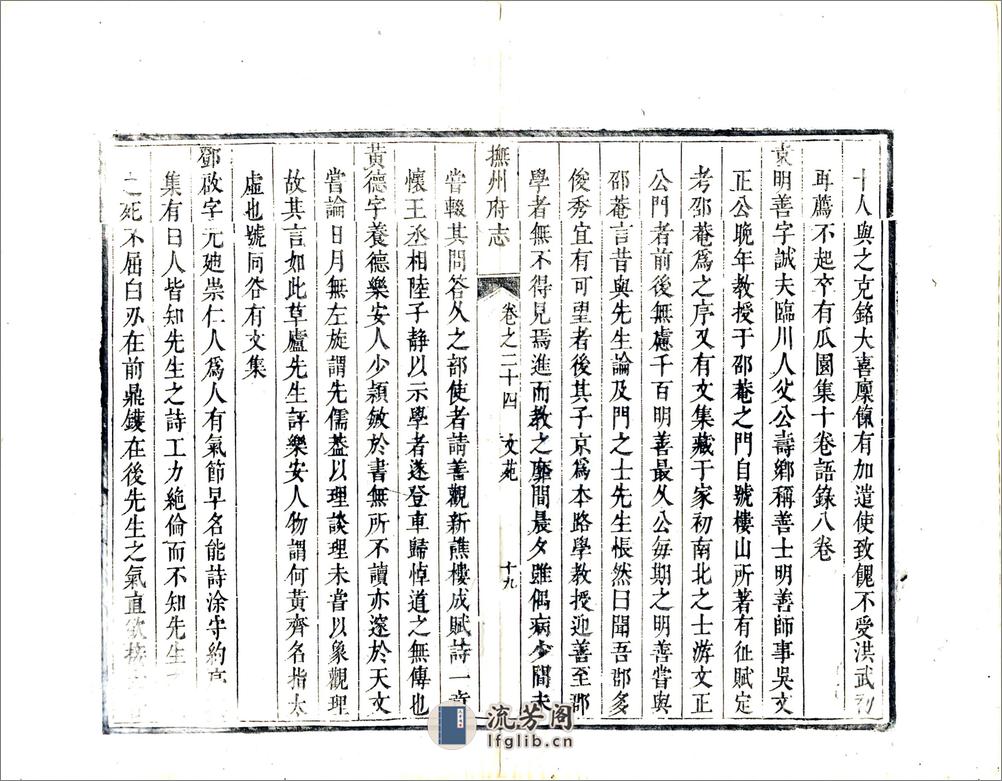 十人與之克銘大喜廩傔有加遣使致餽不受洪武初
再薦不起卒有瓜園集十卷語錄八卷
袁明善字誠夫臨川人父公壽鄉稱善士明善師事吳文
正公晚年教授于邵菴之門自號樓山所著有征賦定
考邵菴爲之序又有文集藏于家初南北之士游文正
公門者前後無慮千百明善最久公每期之明善嘗與
邵菴言昔與先生論及門之士先生悵然曰聞吾郡多
俊秀宜有可望者後其子京爲本路學教授迎善至郡
學者無不得見焉進而教之靡間晨夕雖偶病少間未
撫州府志
卷之二十四
文苑
十九
嘗輟其問答久之部使者請善觀新譙樓成賦詩一章
懷王丞相陸子靜以示學者遂登車歸悼道之無傳也
黃德字養德樂安人少穎敏於書無所不讀亦邃於天文
嘗論日月無左旋謂先儒葢以理談理未嘗以象觀理
故其言如此草廬先生評樂安人物謂何黃齊名指太
虛也號同谷有文集
鄧啟字元廸崇仁人爲人有氣節早名能詩涂守約序
集有曰人皆知先生之詩工力絶倫而不知先生
之死不屈白刃在前鼎鑊在後先生之氣直欲
流芳阁
lfglib.cn